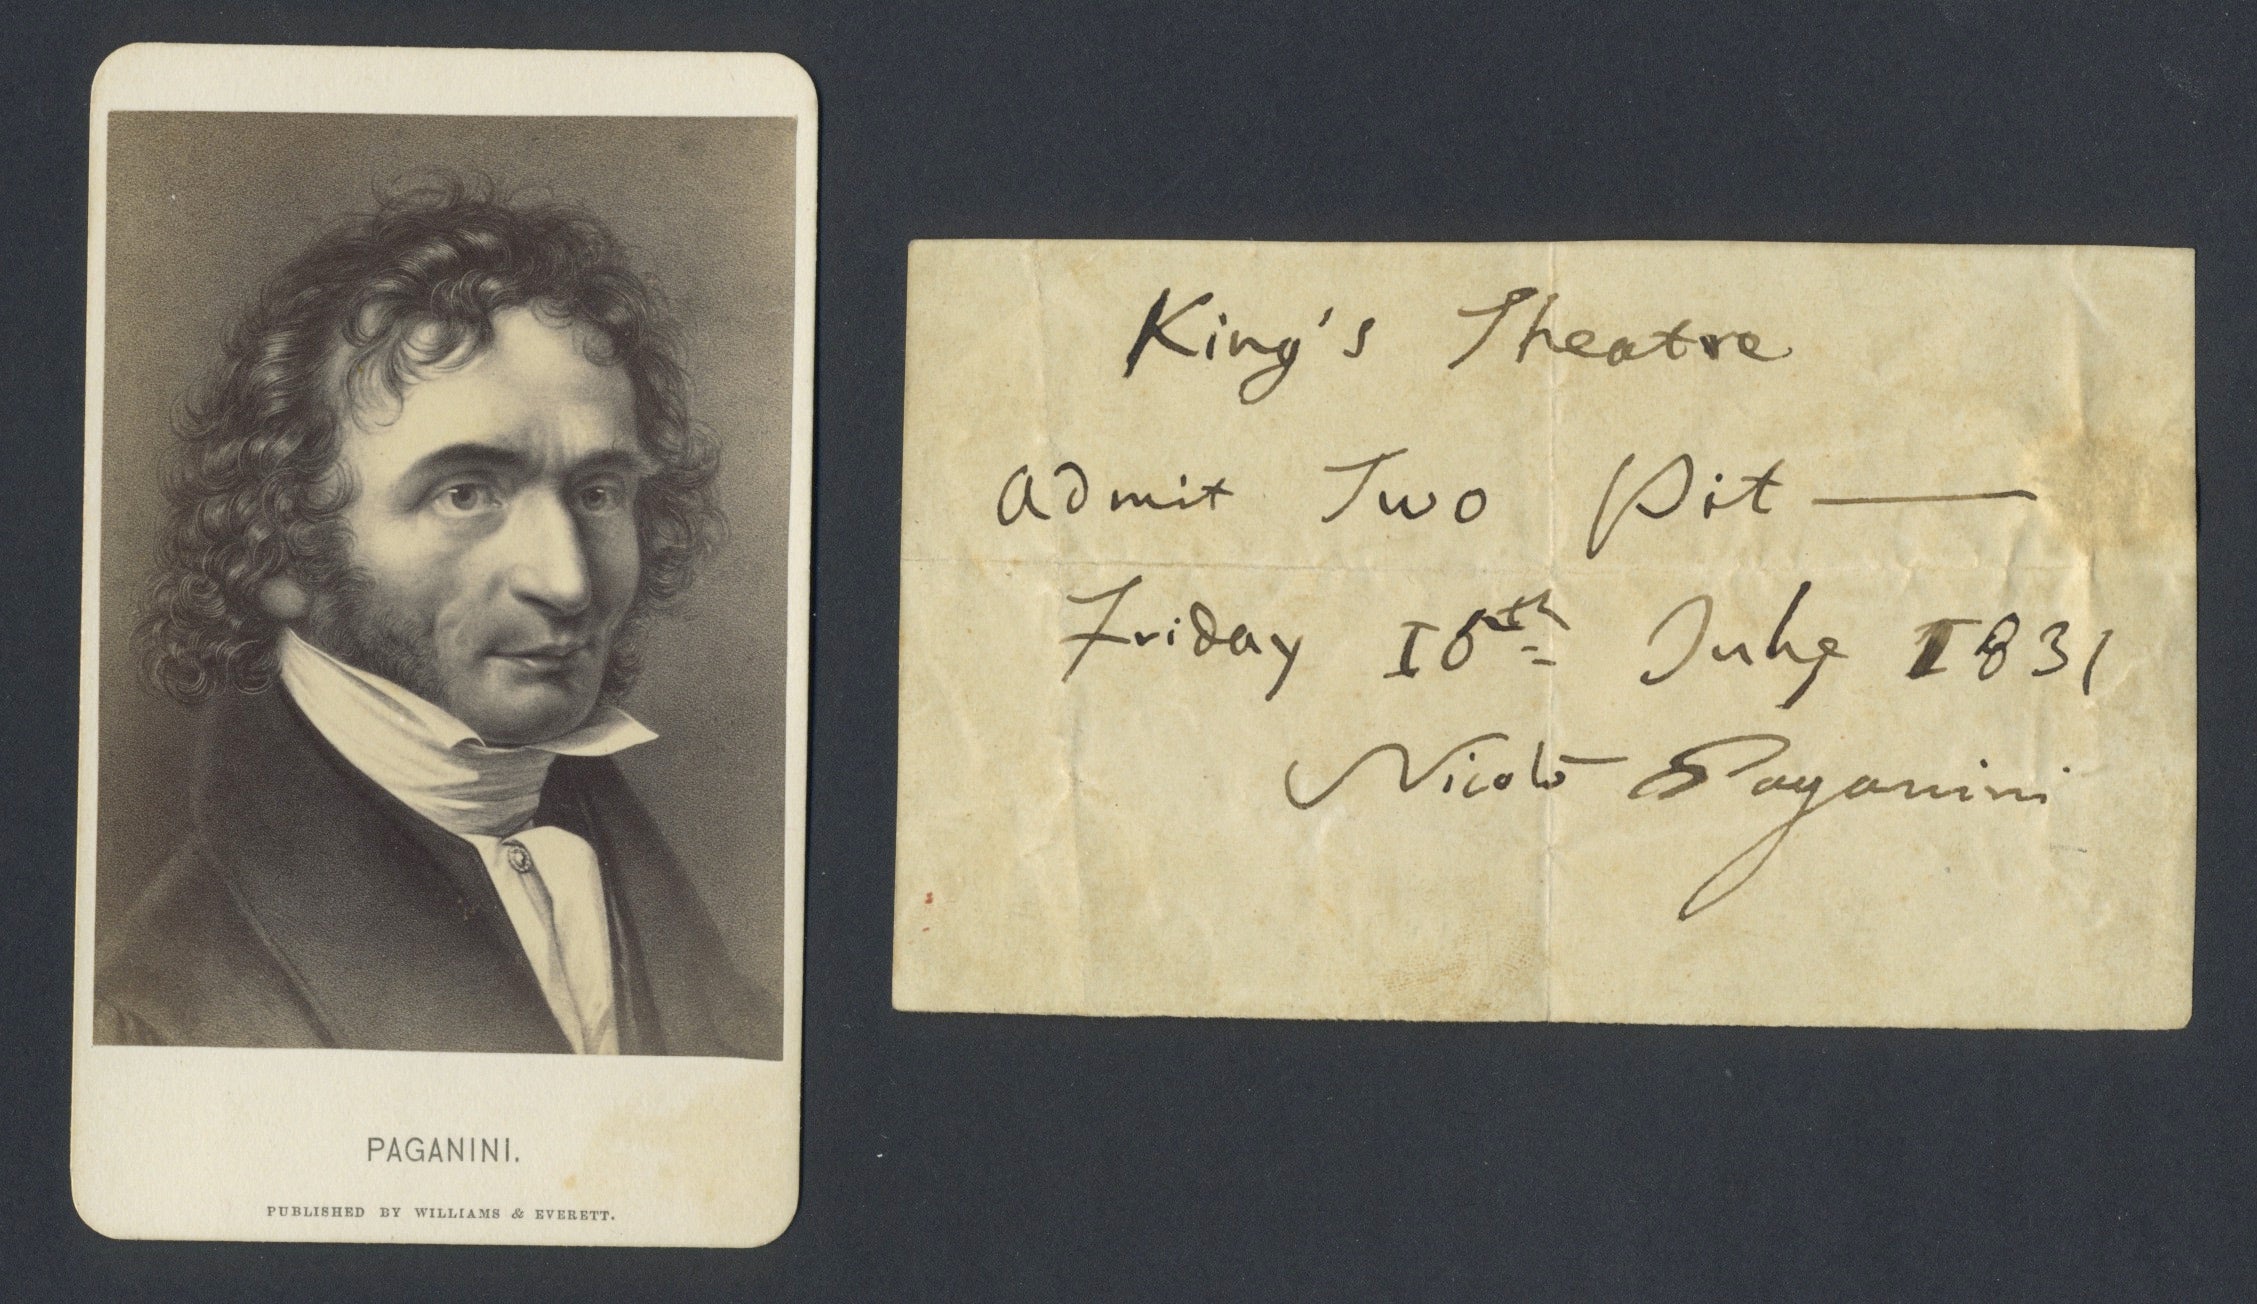 PAGANINI.
PUBLISHED BY WILLIAMS & EVERETT.
King's Theatre
Admit Two Pit —
Friday 15th July 1831
Nicolò Paganini